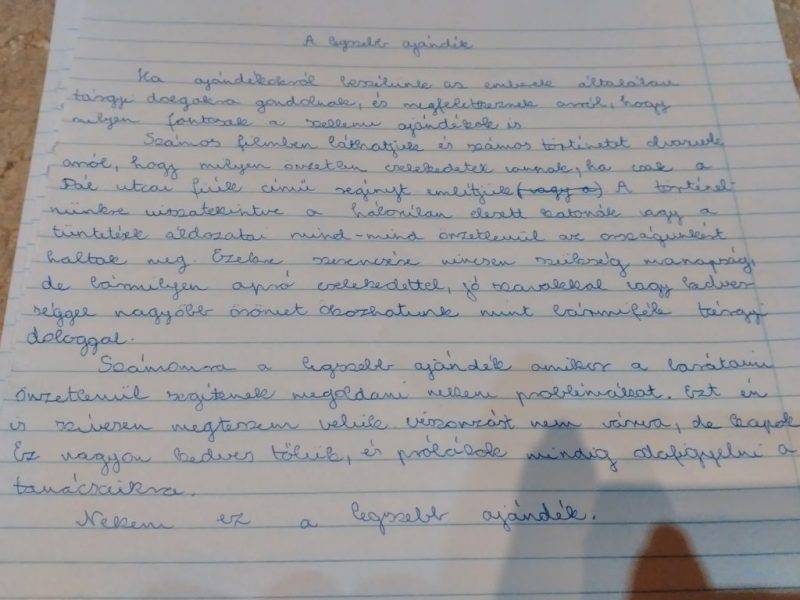 A legszebb ajándék
Ha ajándékokról beszélünk az emberek általában
tárgyi dolgokra gondolnak, és megfeletkeznek arról, hogy
milyen fontosak a szellemi ajándékok is
Számos filmben láthatjuk és számos történetet olvasunk
arról, hogy milyen önzetlen cselekedetek vannak, ha csak a
Pál utcai fiúk című regényt említjük (vagy a) A történel-
münkre visszatekintve a háborúban elesett katonák vagy a
tüntetések áldozatai mind-mind önzetlenül az országunkért
haltak meg. Ezekre szerencsére nincsen szükség manapság,
de bármilyen apró cselekedettel, jó szavakkal vagy kedves
séggel nagyobb örömet okozhatunk mint bármifék tárgyi
dologgal.
Számomra a legszebb ajándék amikor a barátaim
önzetlenül segítenek megoldani nekem problémáimat. Ezt én
is szívesen megteszem velük viszonzást nem várva, de kapok
Ez nagyon kedves tőlük, és próbálok mindig odafigyelni a
tanácsaikra.
Nekem ez a legszebb ajándék.